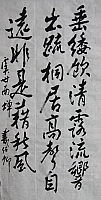 垂緌飲清露流響
出疏桐居高聲自
遠非是藉秋風
虞世南蟬